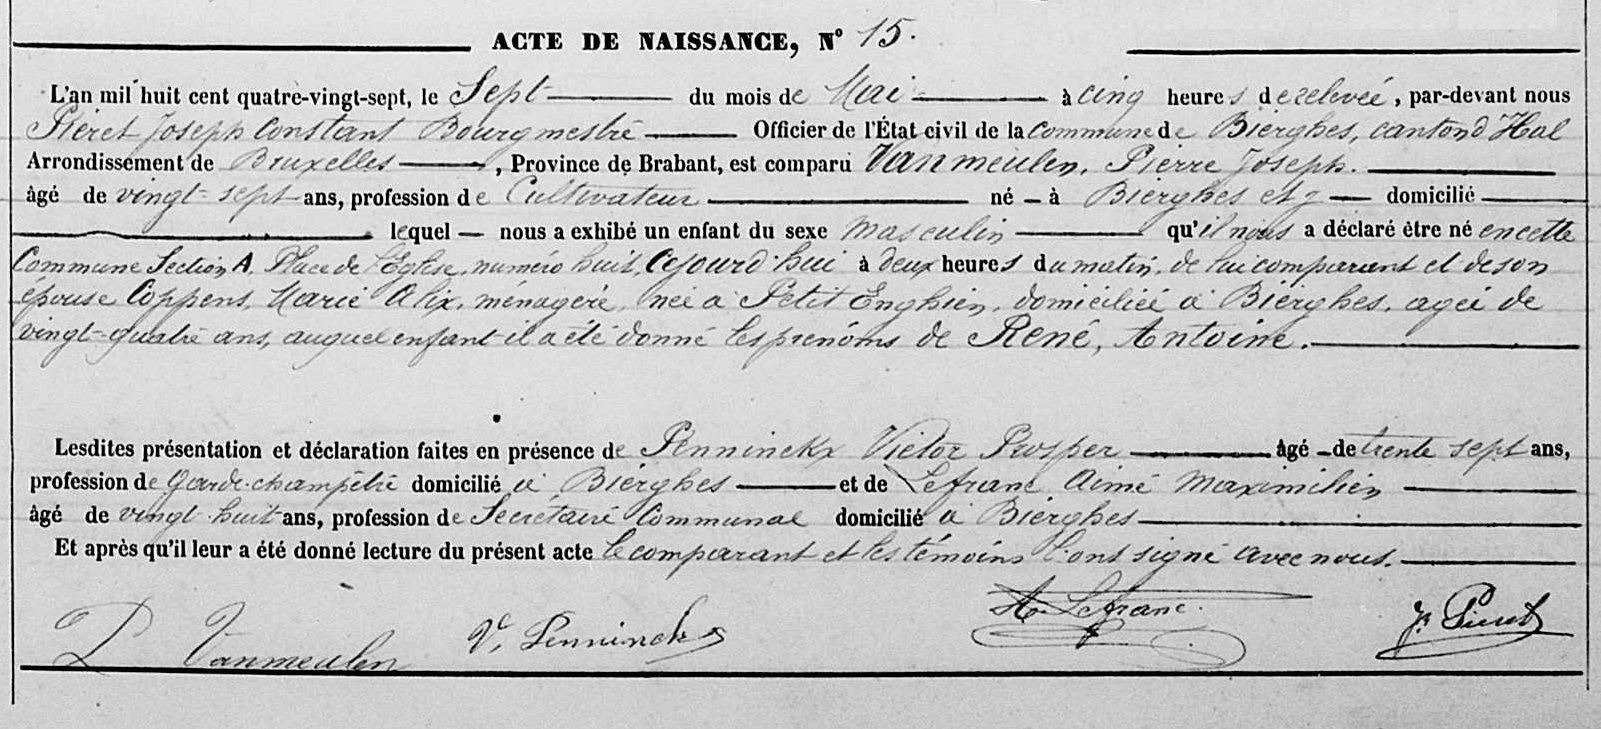 ACTE DE NAISSANCE, N° 15.
L'an mil huit cent quatre-vingt-sept, le Sept du mois de Mai à cinq heures de relevée, par-devant nous
Piéret Joseph Constant Bourgmestre Officier de l'État civil de la commune de Bierghes, canton d'Hal
Arrondissement de Bruxelles, Province de Brabant, est comparu Vanmeulen, Pierre Joseph.
âgé de vingt-sept ans, profession de Cultivateur né à Bierghes et y domicilié
lequel nous a exhibé un enfant du sexe masculin qu'il nous a déclaré être né en cette
Commune Section A, Place de l'Eglise, numéro huit, Cejourd'hui à deux heures du matin, de lui comparant et de son
épouse Coppens, Marie Alix, ménagère, née à Petit Enghien, domiciliée à Bierghes, agée de
vingt-quatre ans, auquel enfant il a été donné les prénoms de René, Antoine.
Lesdites présentation et déclaration faites en présence de Penninckx Victor Prosper âgé de trente sept ans,
profession de Garde-champêtre domicilié à Bierghes et de Lefranc Aimé Maximilien
âgé de vingt-huit ans, profession de Secrétaire Communal domicilié à Bierghes
Et après qu'il leur a été donné lecture du présent acte le comparant et les témoins l'ont signé avec nous.
P Vanmeulen V. Penninckx A. Lefranc. J. Piéret